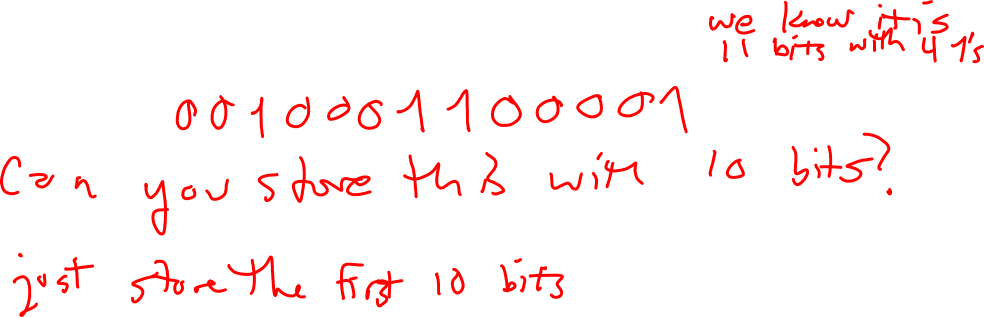 we know it is
11 bits with 4 1's
0010001100001
Can you store this with 10 bits?
just store the first 10 bits